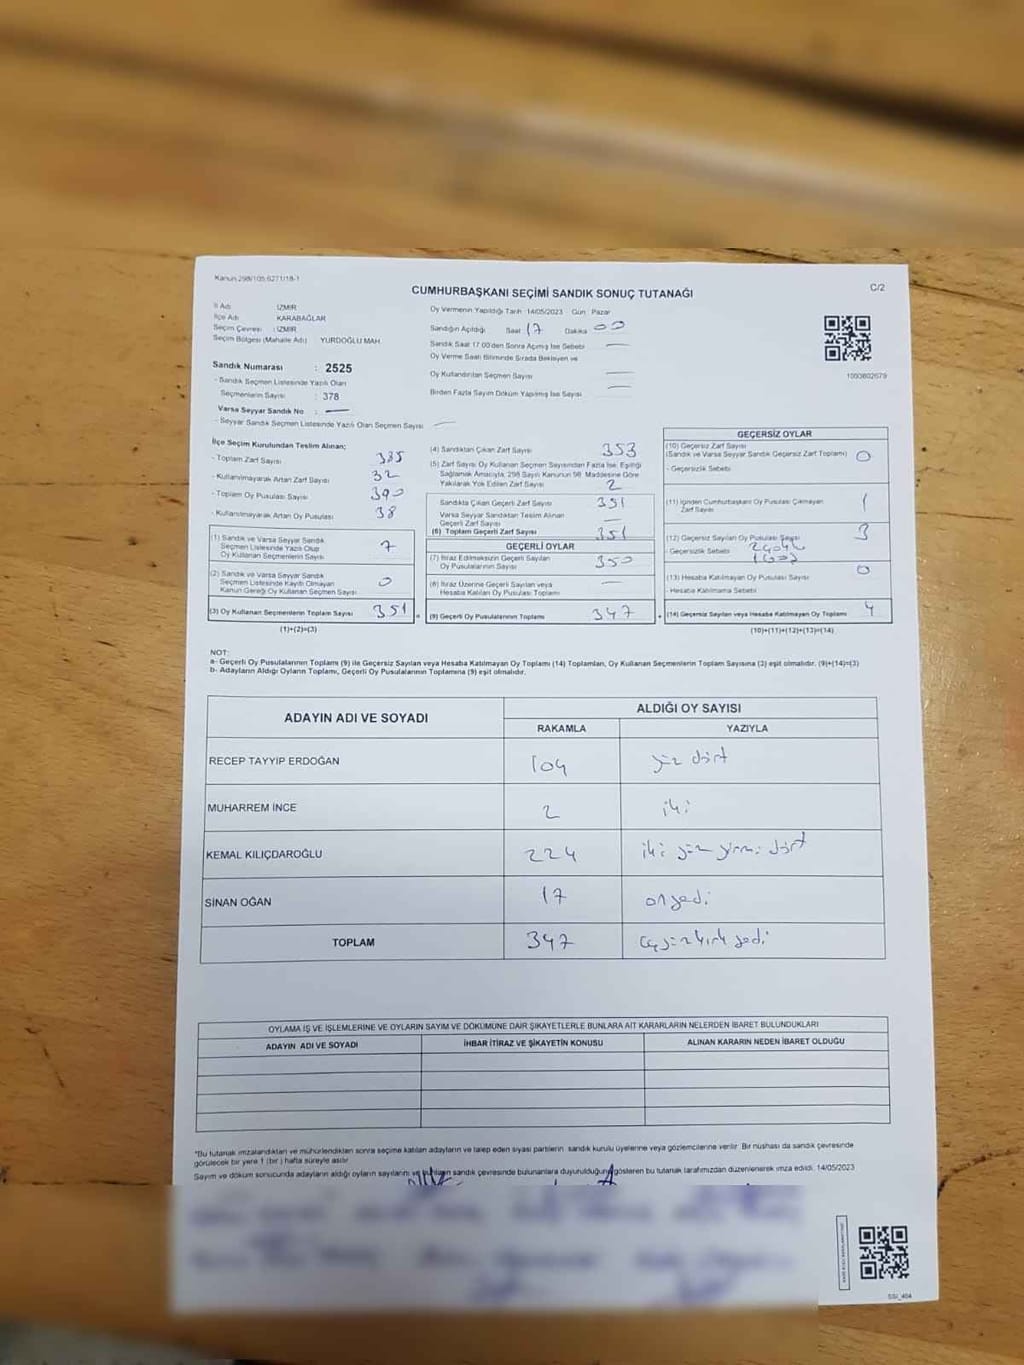 Kanun 298/105;6271/18-1
CUMHURBAŞKANI SEÇİMİ SANDIK SONUÇ TUTANAĞI
C/2
İl Adı : İZMİR
İlçe Adı : KARABAĞLAR
Seçim Çevresi : İZMİR
Seçim Bölgesi (Mahalle Adı) YURDOĞLU MAH.
Sandık Numarası : 2525
- Sandık Seçmen Listesinde Yazılı Olan
Seçmenlerin Sayısı : 378
Varsa Seyyar Sandık No : —
- Seyyar Sandık Seçmen Listesinde Yazılı Olan Seçmen Sayısı —
Oy Vermenin Yapıldığı Tarih 14/05/2023 Gün Pazar
Sandığın Açıldığı Saat 17 Dakika 00
Sandık Saat 17.00'den Sonra Açılmış İse Sebebi —
Oy Verme Saati Bitiminde Sırada Bekleyen ve
Oy Kullandırılan Seçmen Sayısı —
Birden Fazla Sayım Döküm Yapılmış İse Sayısı —
1003802679
İlçe Seçim Kurulundan Teslim Alınan;
- Toplam Zarf Sayısı 385
- Kullanılmayarak Artan Zarf Sayısı 32
- Toplam Oy Pusulası Sayısı 390
- Kullanılmayarak Artan Oy Pusulası 38
(1) Sandık ve Varsa Seyyar Sandık
Seçmen Listesinde Yazılı Olup
Oy Kullanan Seçmenlerin Sayısı 7
(2) Sandık ve Varsa Seyyar Sandık
Seçmen Listesinde Kayıtlı Olmayan
Kanun Gereği Oy Kullanan Seçmen Sayısı 0
(3) Oy Kullanan Seçmenlerin Toplam Sayısı 351
(1)+(2)=(3)
(4) Sandıktan Çıkan Zarf Sayısı 353
(5) Zarf Sayısı Oy Kullanan Seçmen Sayısından Fazla İse, Eşitliği
Sağlamak Amacıyla, 298 Sayılı Kanunun 98. Maddesine Göre
Yakılarak Yok Edilen Zarf Sayısı 2
Sandıkta Çıkan Geçerli Zarf Sayısı 351
Varsa Seyyar Sandıktan Teslim Alınan
Geçerli Zarf Sayısı —
(6) Toplam Geçerli Zarf Sayısı 351
GEÇERLİ OYLAR
(7) İtiraz Edilmeksizin Geçerli Sayılan
Oy Pusulalarının Sayısı 350
(8) İtiraz Üzerine Geçerli Sayılan veya
Hesaba Katılan Oy Pusulası Toplamı —
(9) Geçerli Oy Pusulalarının Toplamı 347
GEÇERSİZ OYLAR
(10) Geçersiz Zarf Sayısı
(Sandık ve Varsa Seyyar Sandık Geçersiz Zarf Toplamı) 0
- Geçersizlik Sebebi
(11) İçinden Cumhurbaşkanı Oy Pusulası Çıkmayan
Zarf Sayısı 1
(12) Geçersiz Sayılan Oy Pusulası Sayısı 3
- Geçersizlik Sebebi
(13) Hesaba Katılmayan Oy Pusulası Sayısı 0
- Hesaba Katılmama Sebebi
(14) Geçersiz Sayılan veya Hesaba Katılmayan Oy Toplamı 4
(10)+(11)+(12)+(13)=(14)
NOT:
a- Geçerli Oy Pusulalarının Toplamı (9) ile Geçersiz Sayılan veya Hesaba Katılmayan Oy Toplamı (14) Toplamları, Oy Kullanan Seçmenlerin Toplam Sayısına (3) eşit olmalıdır. (9)+(14)=(3)
b- Adayların Aldığı Oyların Toplamı, Geçerli Oy Pusulalarının Toplamına (9) eşit olmalıdır.
ADAYIN ADI VE SOYADI
ALDIĞI OY SAYISI
RAKAMLA YAZIYLA
RECEP TAYYİP ERDOĞAN 104 yüz dört
MUHARREM İNCE 2 iki
KEMAL KILIÇDAROĞLU 224 iki yüz yirmi dört
SİNAN OĞAN 17 on yedi
TOPLAM 347 üçyüz kırk yedi
OYLAMA İŞ VE İŞLEMLERİNE VE OYLARIN SAYIM VE DÖKÜMÜNE DAİR ŞİKAYETLERLE BUNLARA AİT KARARLARIN NELERDEN İBARET BULUNDUKLARI
ADAYIN ADI VE SOYADI İHBAR İTİRAZ VE ŞİKAYETİN KONUSU ALINAN KARARIN NEDEN İBARET OLDUĞU
*Bu tutanak imzalandıktan ve mühürlendikten sonra seçime katılan adayların ve talep eden siyasi partilerin sandık kurulu üyelerine veya gözlemcilerine verilir. Bir nüshası da sandık çevresinde
görülecek bir yere 1 (bir) hafta süreyle asılır.
Sayım ve döküm sonucunda adayların aldığı oyların sayılarını ve bunların sandık çevresinde bulunanlara duyurulduğunu gösteren bu tutanak tarafımızdan düzenlenerek imza edildi. 14/05/2023
SSI_404